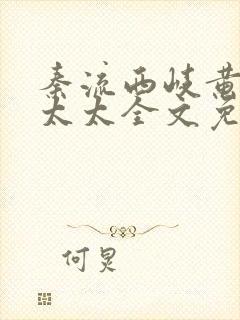 秦流西岐黄
太太全文免
何炅